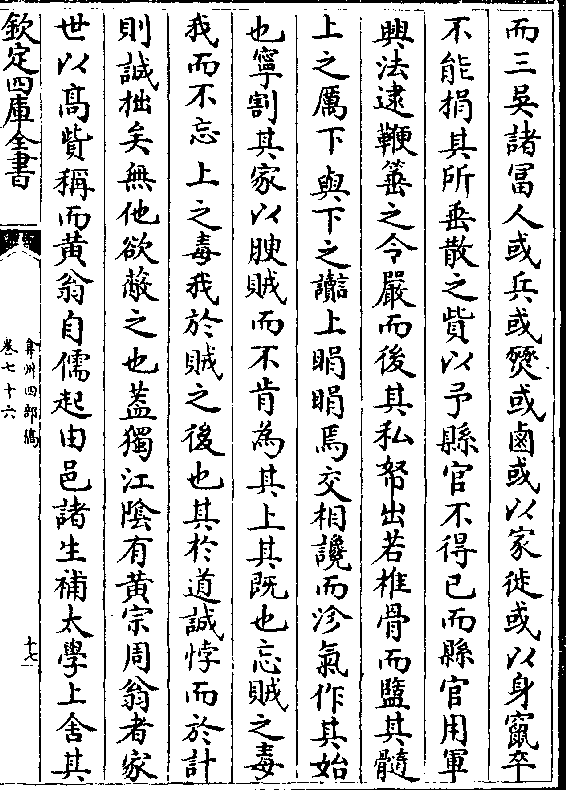 而三吳諸冨人或兵或燹或鹵或以家徙或以身竄卒
不能捐其所垂散之貲以予縣官不得已而縣官用軍
興法逮鞭箠之令嚴而後其私帑出若椎骨而盬其髓
上之厲下與下之讟上睊睊焉交相讒而沴氣作其始
也寧割其家以腴賊而不肯為其上其既也忘賊之毒
我而不忘上之毒我於賊之後也其於道誠悖而於計
則誠拙矣無他欲蔽之也葢獨江陰有黄宗周翁者家
世以髙貲稱而黄翁自儒起由邑諸生補太學上舍其
欽定四庫全書
弇州四部稿
卷七十六
十七